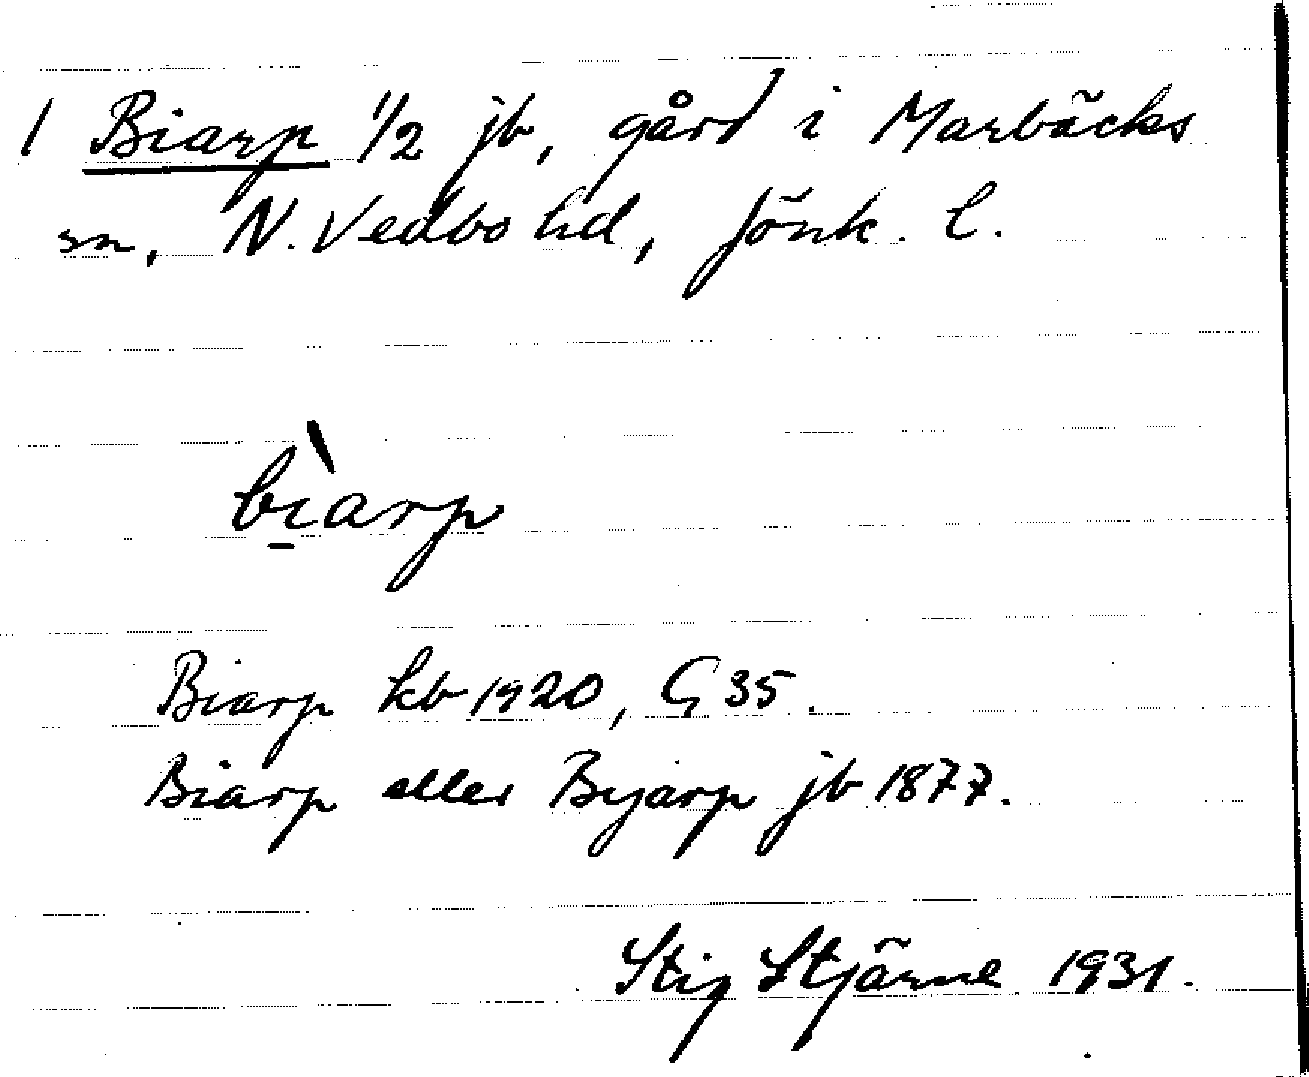 1 Biarp 1/2 jb, gård i Marbäcks
sn, N. Vedbo hd, Jönk. l.
bı̱̀arp
Biarp kb 1920, G 35.
Biarp eller Byarp jb 1877.
Stig Stjärne 1931.